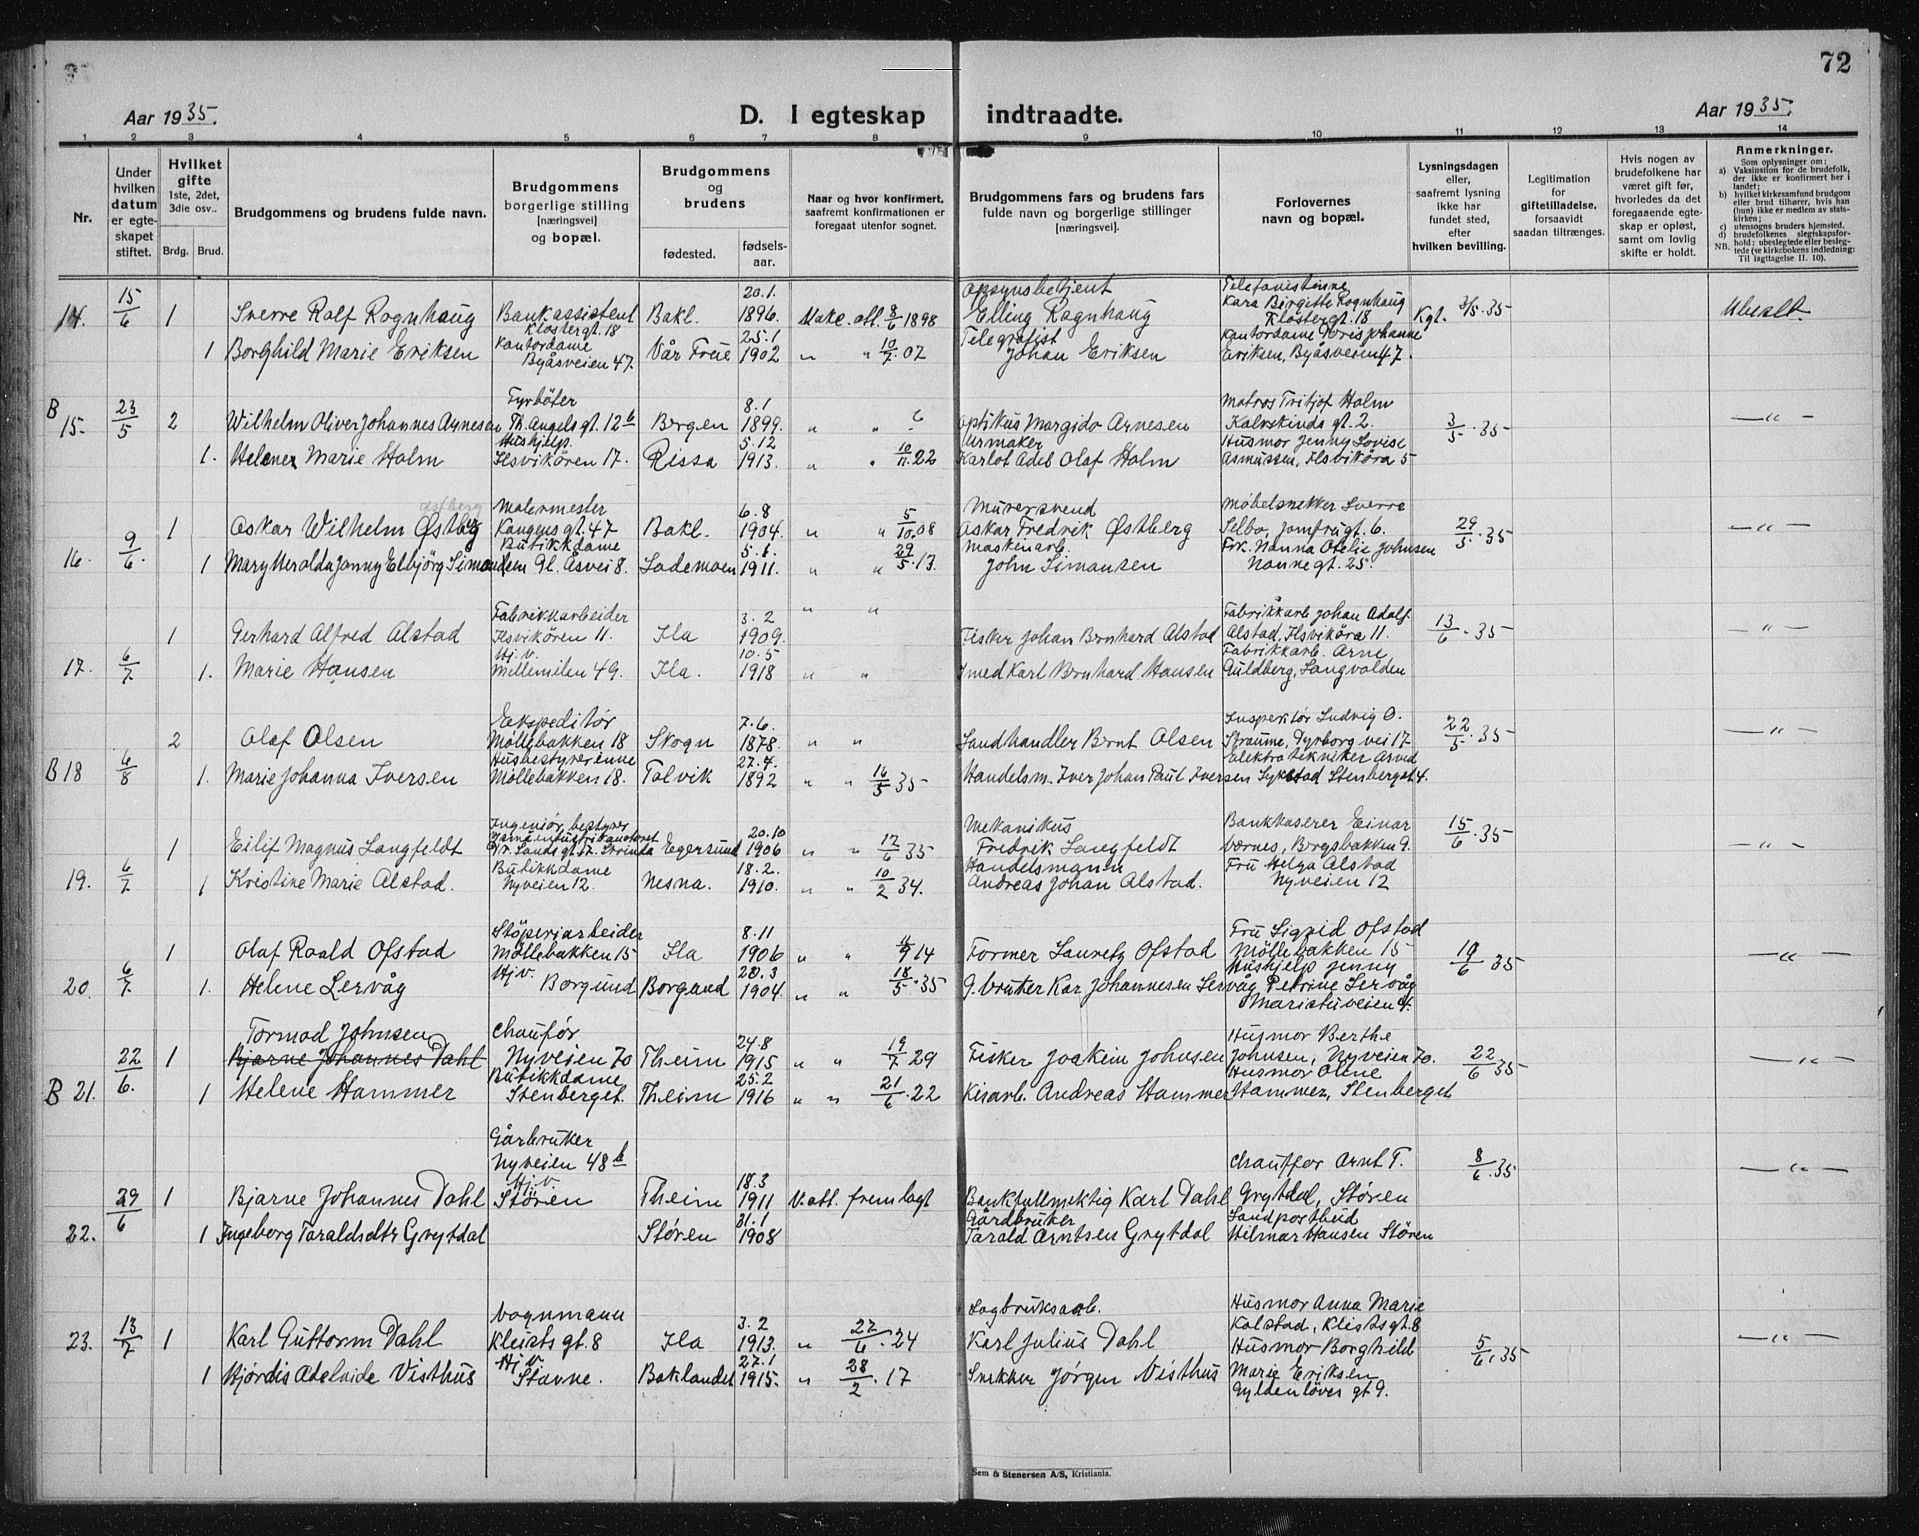 72
Aar 1935.
D. I egteskap indtraadte.
Aar 1935.
1 2 3 4 5 6 7 8 9 10 11 12 13 14
Nr.
Under hvilken datum er egteskapet stiftet.
Hvilket gifte 1ste, 2det, 3die osv..
Brdg. Brud.
Brudgommens og brudens fulde navn.
Brudgommens borgerlige stilling [næringsvei] og bopæl.
Brudgommens og brudens
fødested.
fødselsaar.
Naar og hvor konfirmert, saafremt konfirmationen er foregaat utenfor sognet.
Brudgommens fars og brudens fars fulde navn og borgerlige stillinger [næringsvei].
Forlovernes navn og bopæl.
Lysningsdagen eller, saafremt lysning ikke har fundet sted, efter hvilken bevilling.
Legitimation for giftetilladelse, forsaavidt saadan tiltrænges.
Hvis nogen av brudefolkene har været gift før, hvorledes da det foregaaende egteskap er opløst, samt om lovlig skifte er holdt.
Anmerkninger.
Som oplysninger om:
a) Vaksination for de brudefolk, der ikke er konfirmert her i landet;
b) hvilket kirkesamfund brudgom eller brud tilhører, hvis han (hun) ikke er medlem av statskirken;
c) utensogns bruders hjemsted.
d) brudefolkenes slegtskapsforhold; ubeslegtede eller beslegtede (se kirkebokens indledning:
NB. Til iagttagelse II. 10).
14. 15/6 1 Sverre Rolf Rognhaug Bankassistent Klostergt. 18 Bakl. 20.1. 1896. Vake. att. 8/6 1898 Opsynsbetjent Elling Rognhaug Telefonistinne Kara Birgitte Rognhaug Klostergt. 18 Kgt. 3/5.35 Ubesalt.
1 Borghild Marie Eriksen Kontordame Byåsveien 47. Vår Frue 25.1 1902 " " 10/7 07 Telegrafist Johan Eriksen Kontordame Eriksen, Byåsveien 47.
B 15. 23/5 2 Wilhelm Oliver Johannes Arnesen Fyrbøter Th. Angels gt. 12b Bergen 8.1 1899. " " Optikus Margido Arnesen Matros Fritjof Holm Kalvskinds gt. 2. 3/5.35 —"—
1. Helene Marie Holm Hushjelp. Ilsvikøren 17. Rissa 5.12 1913. " " 10/11 22 Urmaker Karlot Adel Olaf Holm Husmor Jenny Lovise Asmussen, Ilsvikøra 5
16. 9/6. 1 Oskar Wilhelm Østberg Østberg Malermester Kongens gt. 47 Bakl. 6.8 1904. " " 5/10.08 Murersvend Oskar Fredrik Østberg Møbelsnekker Sverre Selbo, Jomfrugt. 6. 29/5.35 —"—
1 Mary Heralda Jenny Elbjørg Simonsen Butikkdame Gl. Åsvei 8. Lademoen 5.6. 1911. " " 29/5.13. Maskenarb. John Simonsen Frk. Nanna Otelie Johnsen Nonnegt. 25.
17. 6/7. 1 Gerhard Alfred Alstad Fabrikkarbeider Ilsvikøren 11. Ila 3.2 1909. " " Fisker Johan Bernhard Alstad Fabrikkarb. Johan Adolf Alstad, Ilsvikøra 11. 13/6.35 —"—
1. Marie Hansen Hj.v. Mellemilen 49. Ila. 10.5 1918 " " Smed Karl Bernhard Hansen Fabrikkarb. Arne Guldberg, Sangvolden
B 18 6/8 2 Olaf Olsen Ekspeditør Møllebakken 18 Skogn 7.6. 1878. " " Landhandler Bernt Olsen Inspektør Ludvig O. Straume, Dyrborg vei 17 22/5.35 —"—
1. Marie Johanna Iversen Husbestyrerinne Møllebakken 18. Talvik 27.4. 1892 " " 16/5 35 Handelsm. Iver Johan Paul Iversen Elektrotekniker Arvid Sykstad Stenbergst. 4.
19. 6/7 1 Eilif Magnus Langfeldt Ingeniør, bestyrer Strinda Egersund 20.10 1906 " " 17/6 35 Mekanikus Fredrik Langfeldt Bankkaserer Einar Værnes, Borgsbakken 9. 15/6.35 —"—
1 Kristine Marie Alstad. Butikkdame Nyveien 12. Nesna. 18.2. 1910. " " 10/2 34. Handelsmann Andreas Johan Alstad. Fru Helga Alstad Nyveien 12
20. 6/7. 1 Olaf Roald Ofstad Støperiarbeider Møllebakken 15 Ila 8.11 1906 " " 4/9 14 Former Lauretz Ofstad Fru Sigrid Ofstad Møllebakken 15 19/6 35 —"—
1. Helene Lervåg Hj.v. Borgund Borgund 20.3 1904. " " 18/5.35 G.bruker Kar Johannesen Lervåg Hushjelp Jenny Petrine Lervåg Maristuveien 4.
B 21. 22/6. 1 Tormod Johnsen Bjarne Johannes Dahl Chaufør Nyveien 70 Theim 24.8 1915 " " 19/7 29 Fisker Joakim Johnsen Husmor Berthe Johnsen, Nyveien 70. 22/6 35 —"—
1 Helene Hammer Butikkdame Stenberget. Theim 25.2 1916 " " 21/6.22 Kisarb. Andreas Hammer Husmor Oline Hammer, Stenberget
22. 29/6 1 Bjarne Johannes Dahl Gårbruker Nyveien 48b Theim 18.3 1911 V. att. fremlagt Bankfullmektig Karl Dahl Chauffør Arnt T. Grytdal, Støren 8/6.35 —"—
1 Ingeborg Taraldsdtr Grytdal Hj.v. Støren Støren 31.1 1908 Gårdbruker Tarald Arntsen Grytdal Landpostbud Hilmar Hansen Støren
23. 13/7 1 Karl Guttorm Dahl Vognmann Kleists gt. 8 Ila 3.2 1913. " 27/6.24 Sagbruksarb. Karl Julius Dahl Husmor Anna Marie Kolstad, Kleistsgt. 8 5/6.35 —"—
1 Hjørdis Adelaide Visthus Hj.v. Stavne. Baklandet 27.1 1915. " 28/2.17 Snekker Jørgen Visthus Husmor Borghild Marie Eriksen Gyldenløves gt 9.
Sem & Stenersen A/S, Kristiania.